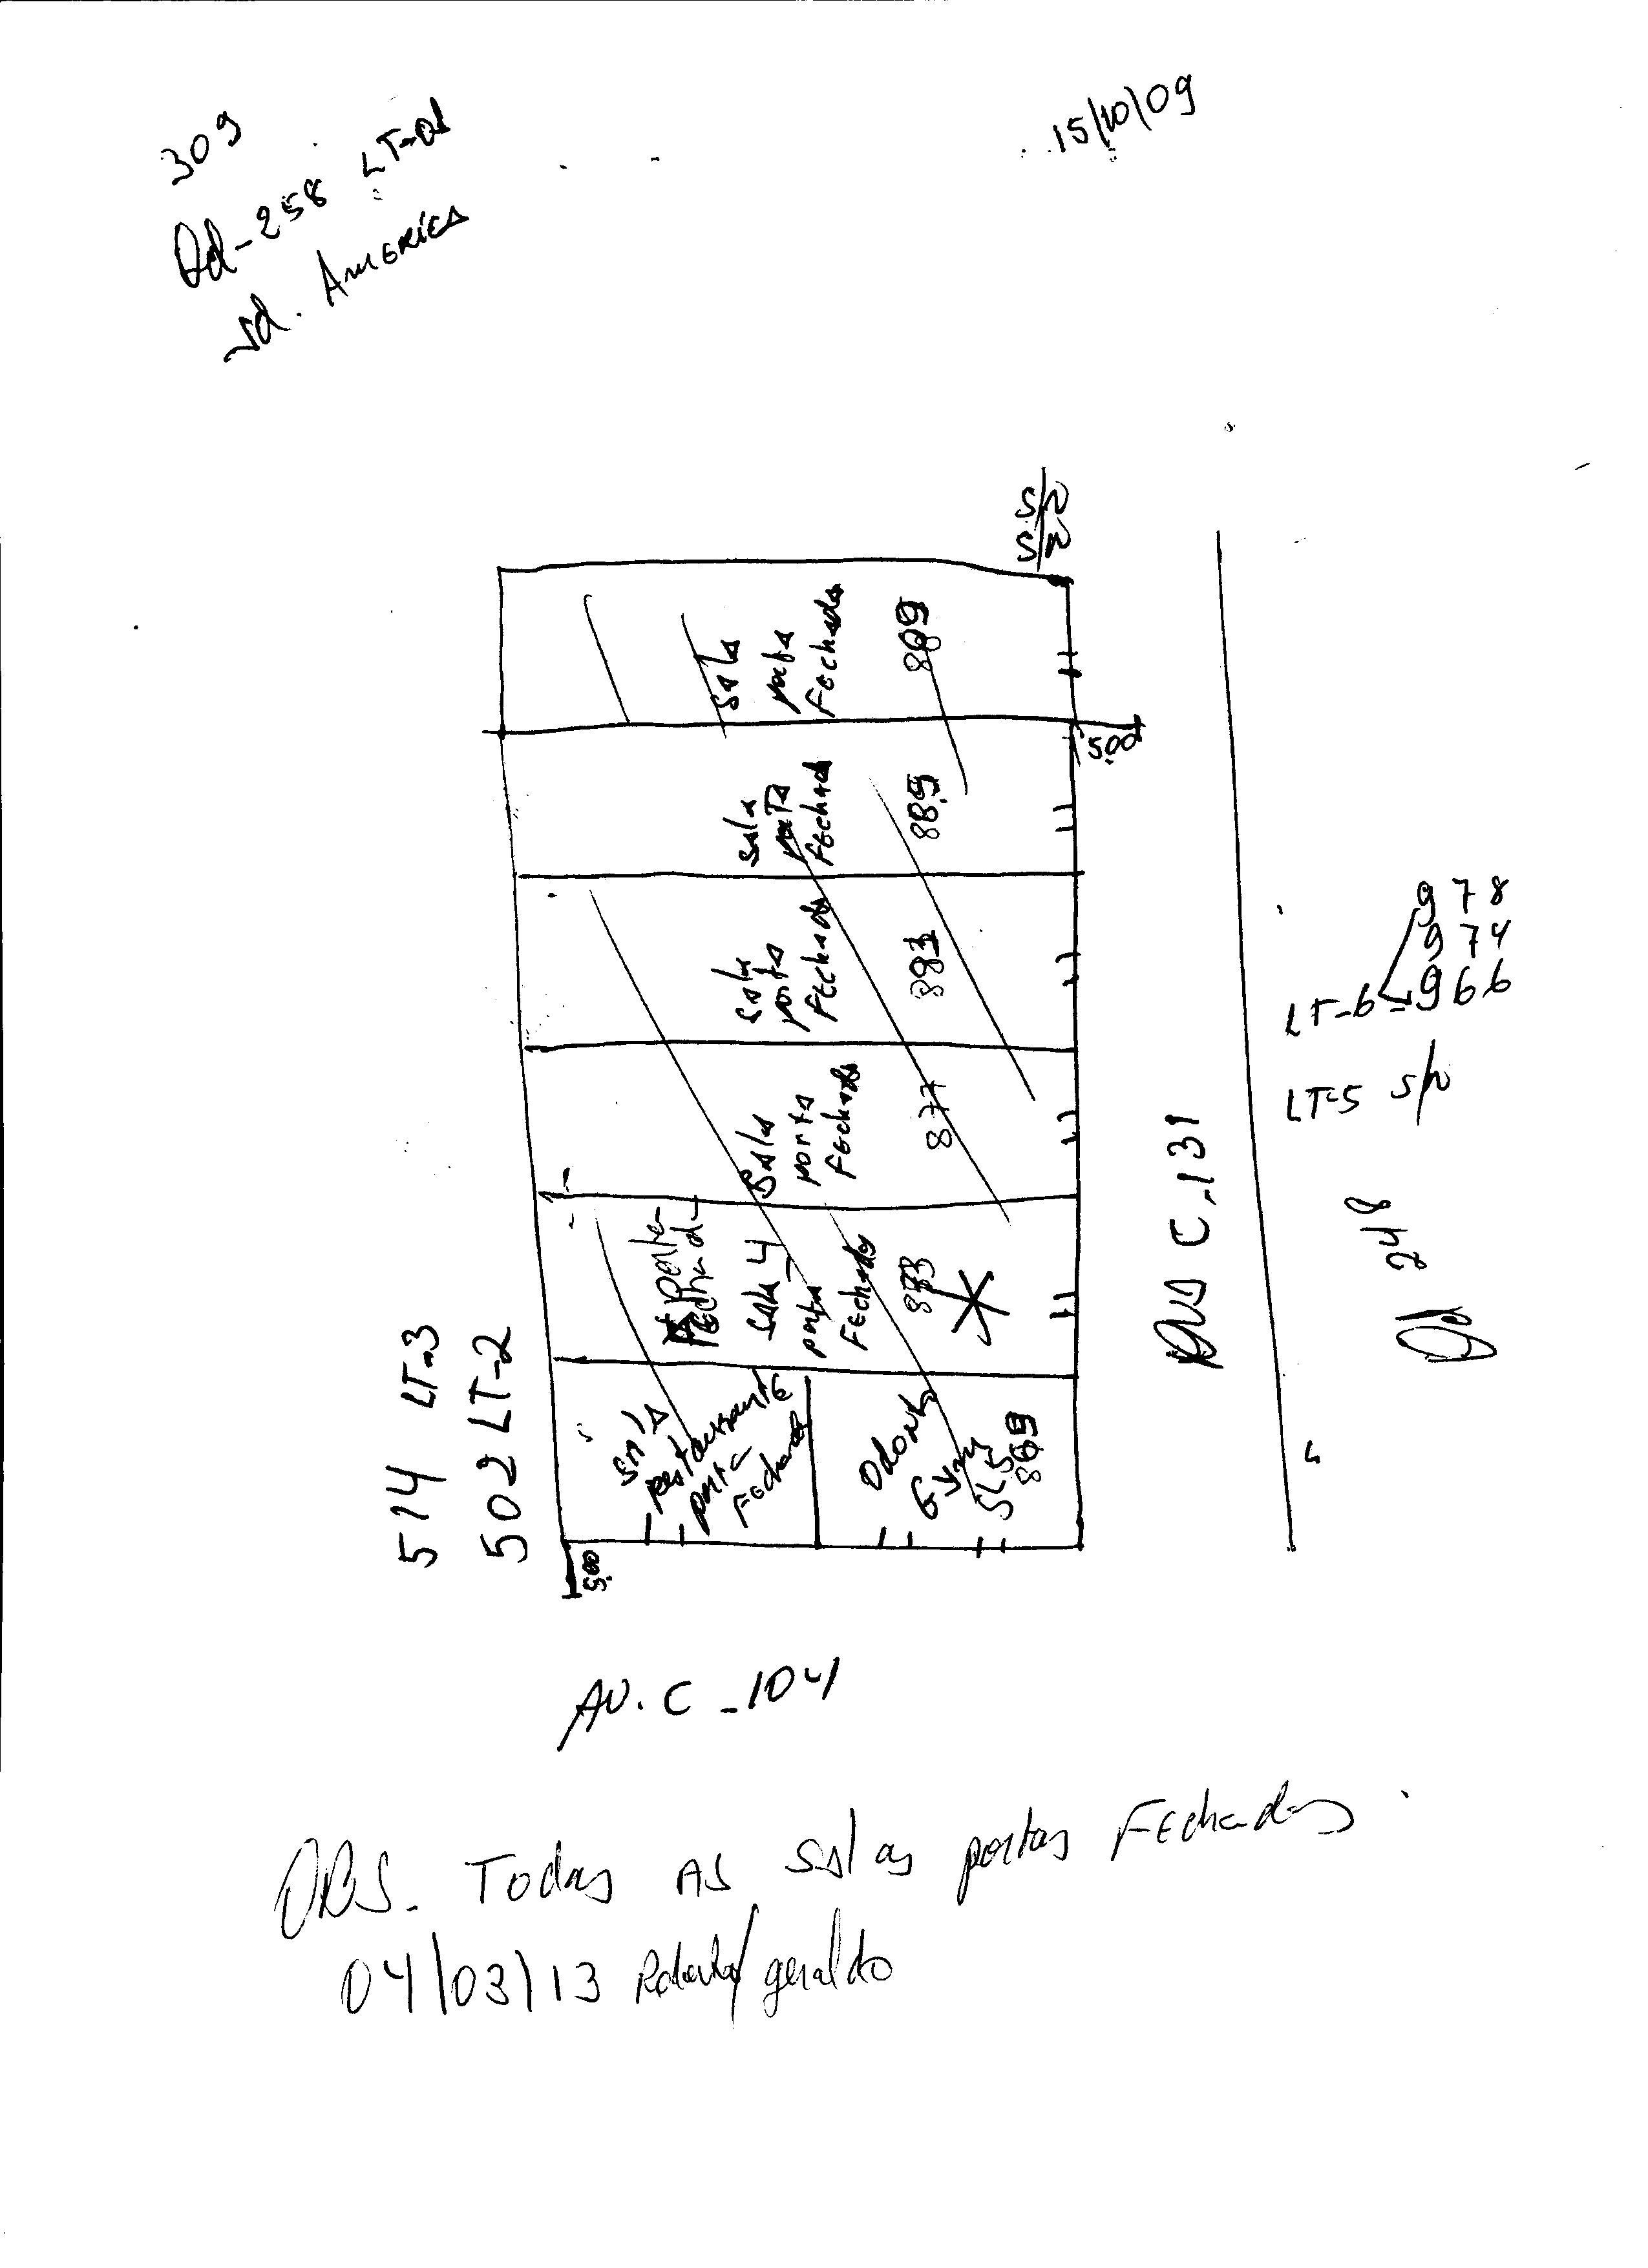 309
Qd-258 LT-01
Jd. AMERICA
15/10/09
S/N
S/N
Sala
porta
FEchada
889
5.00
Sala
porta
FEchada
885
Sala
porta
FEchada
881
Sala
porta
FEchada
877
porta
FEchada
Sala 4
porta
FEchada
873
restaurante
porta
FEchada
Odonto
Gym
SL 5
869
5.00
514 LT-3
502 LT-2
RUA C-131
978
974
LT-6 966
LT-5 S/N
Qd 248
AV. C-104
OBS. Todas AS salas portas FEchadas.
04/03/13 Roberto/geraldo